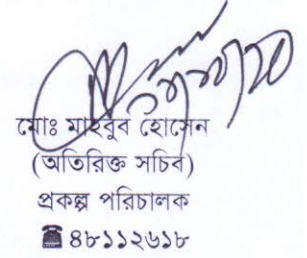 মোঃ মাহবুব হোসেন
(অতিরিক্ত সচিব)
প্রকল্প পরিচালক
☎ ৪৮১১২৬১৮